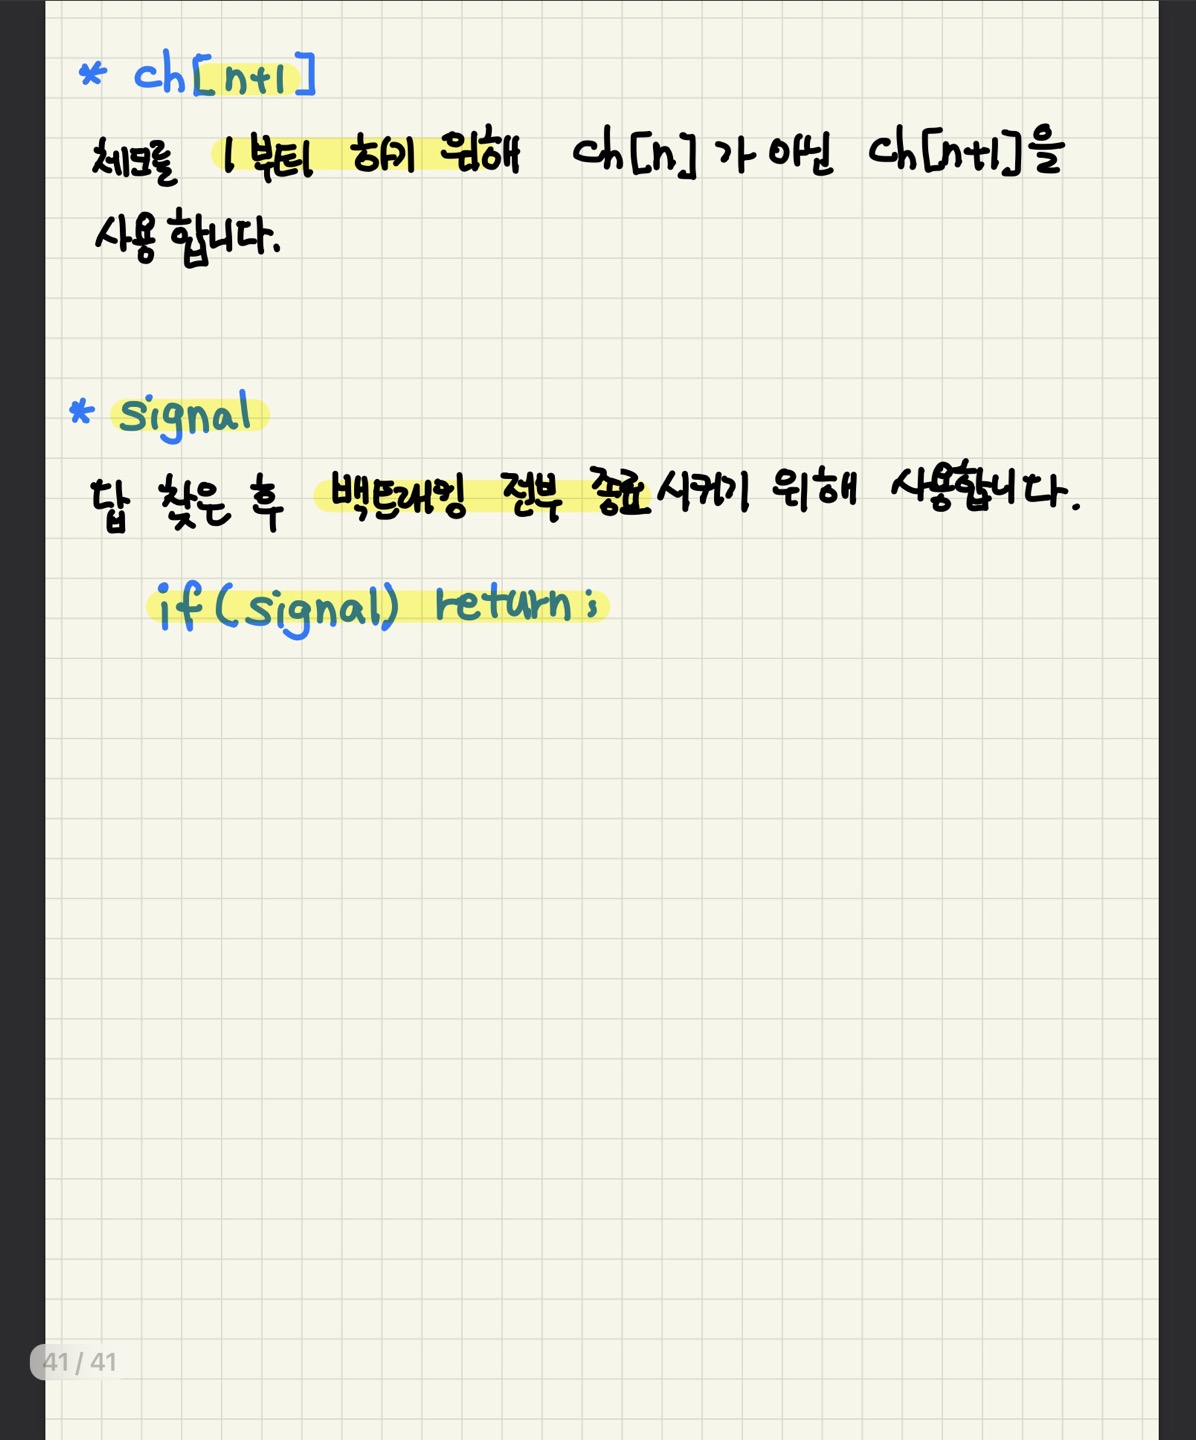 * ch[n+1]
체크를 1부터 하기 위해 ch[n]가 아닌 ch[n+1]을
사용합니다.
* signal
답 찾은 후 백트래킹 전부 종료시키기 위해 사용합니다.
if(signal) return;
41 / 41